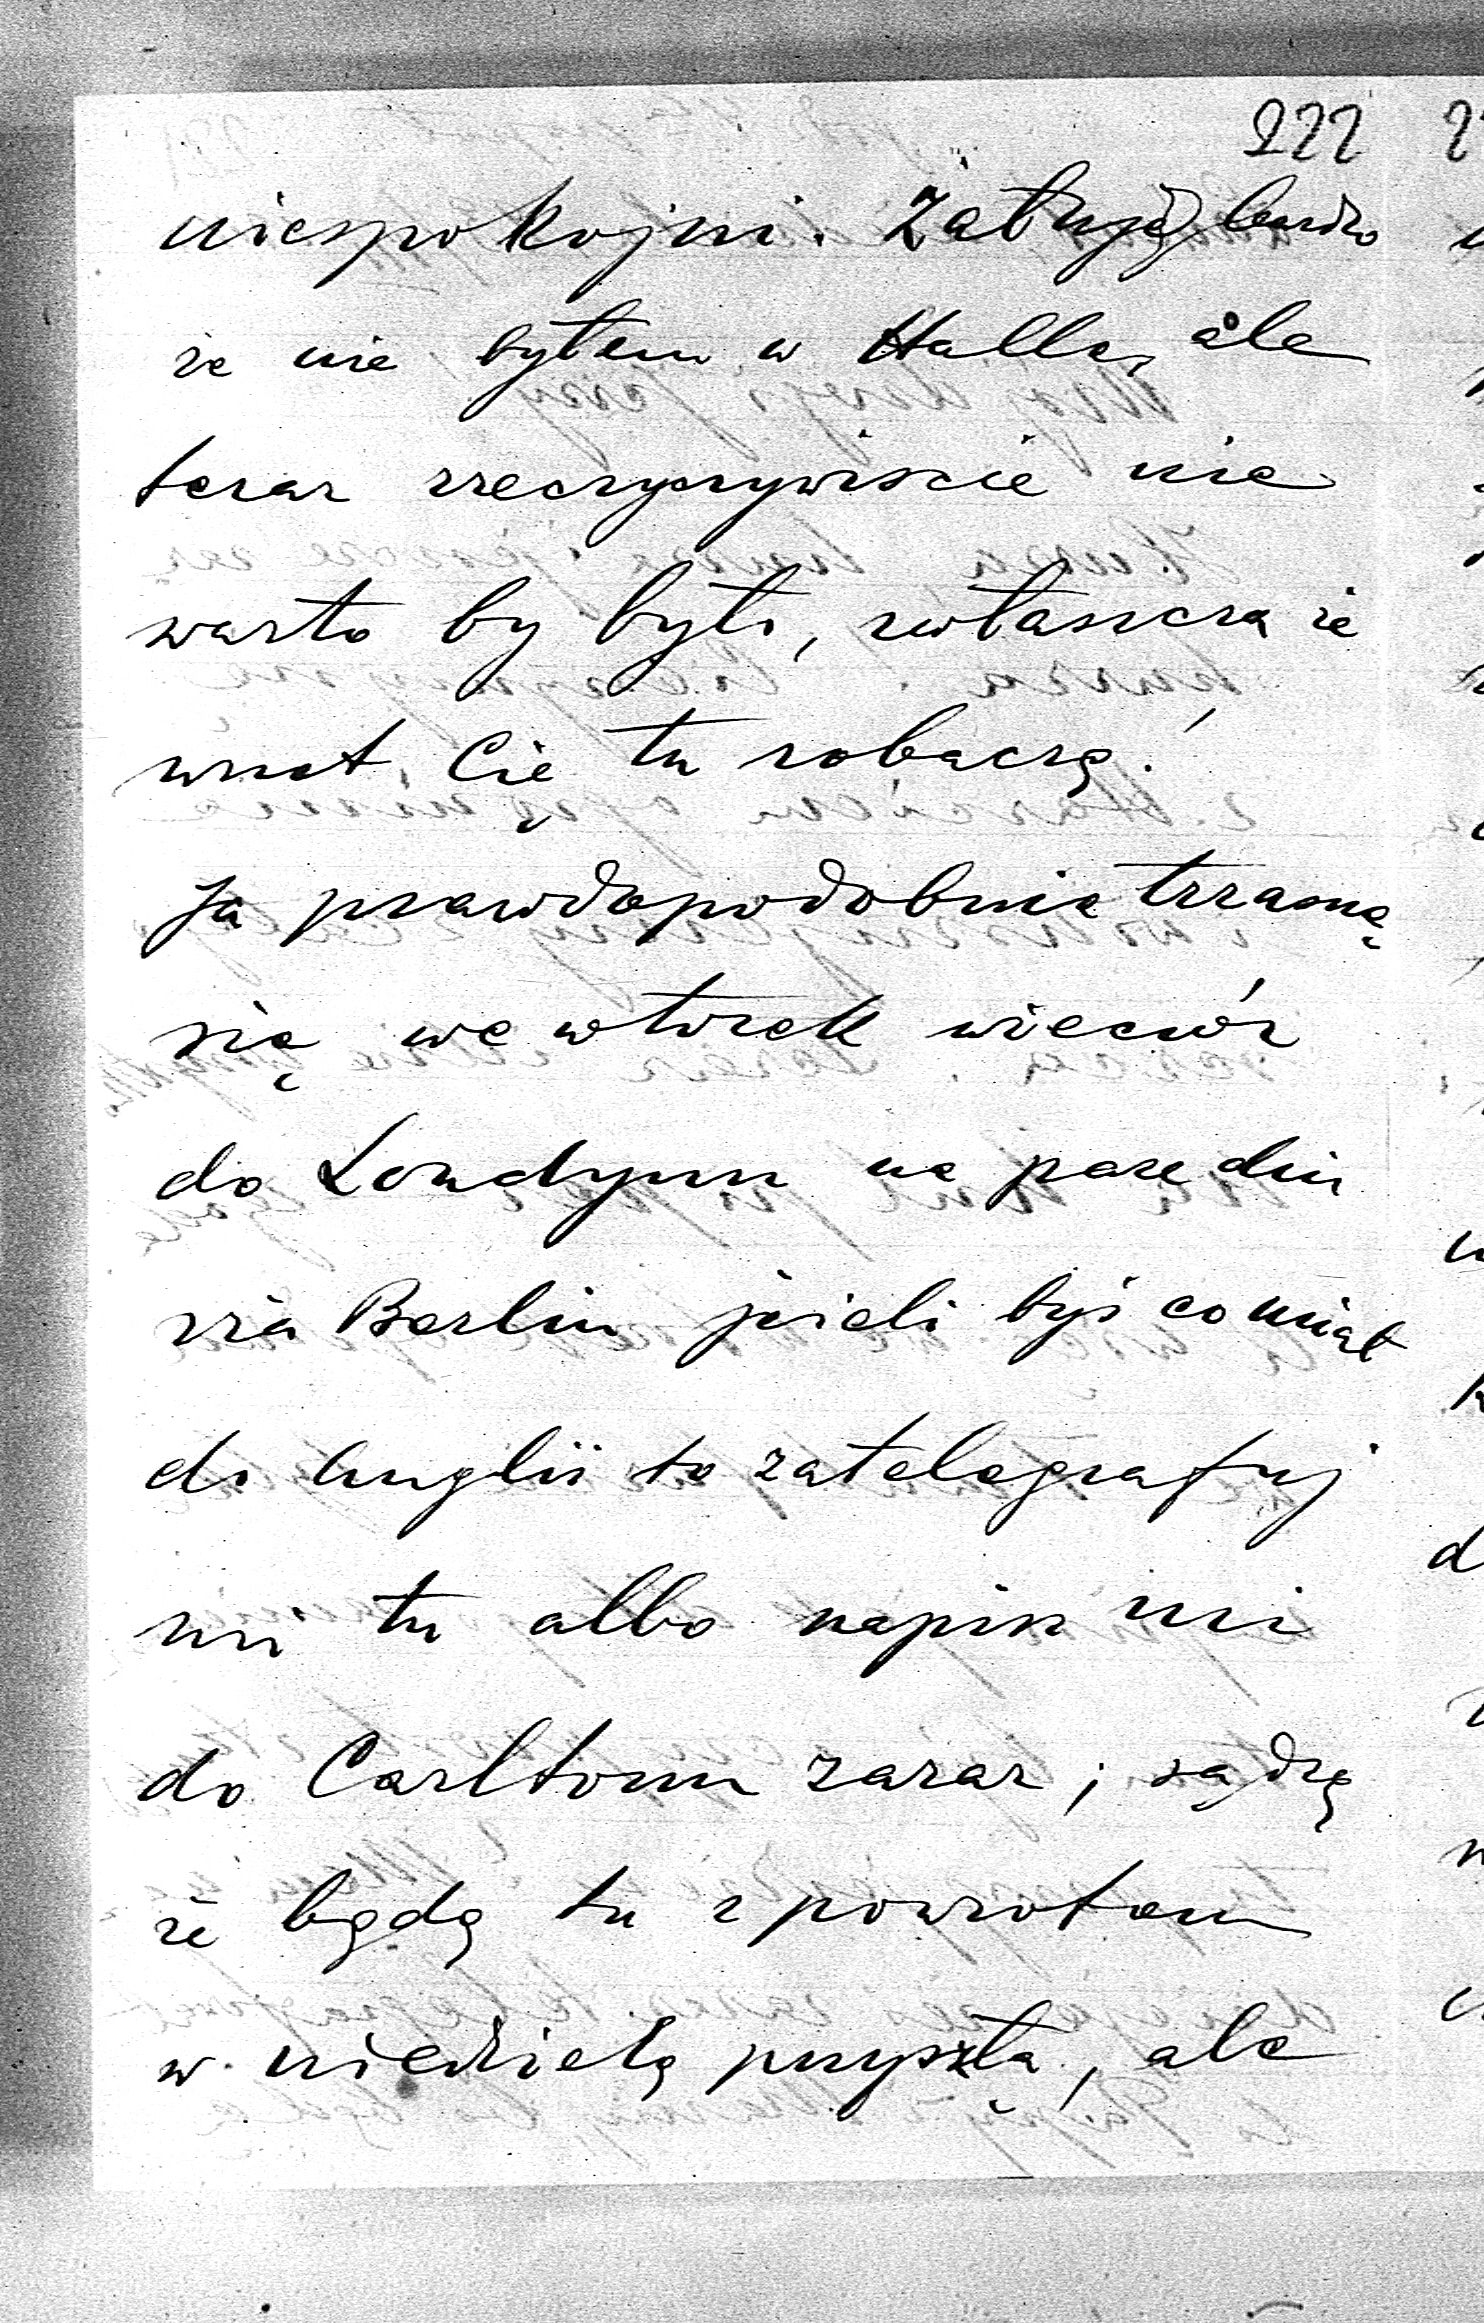 222
niespokojni. Żałuję bardzo
że nie byłem w Halle, ale
teraz rzeczyczywiscie nie
warto by było, zwłaszcza że
wnet Cię tu zobaczę!
Ja prawdopodobnie trzasnę
się we wtorek wieczór
do Londynu na parę dni
via Berlin jeżeli byś co miał
do Anglii to zatelegrafuj
mi tu albo napisz mi
do Carltonu zaraz; sądzę
że będę tu z powrotem
w niedzielę przyszłą, ale